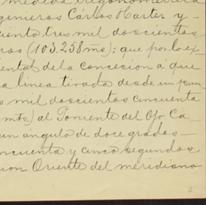 medida trigonometrica
genieros Carlos Harter y
uenta tres mil doscientos
ros (103.238 ms); que por los ex
iental de la concecion a que
a linea tirada desde un pun
s mil doscientos cincuenta
mts) al Poniente del
un angulo de doce grados
ncuenta y cinco segundos
con Oriente del meridiano